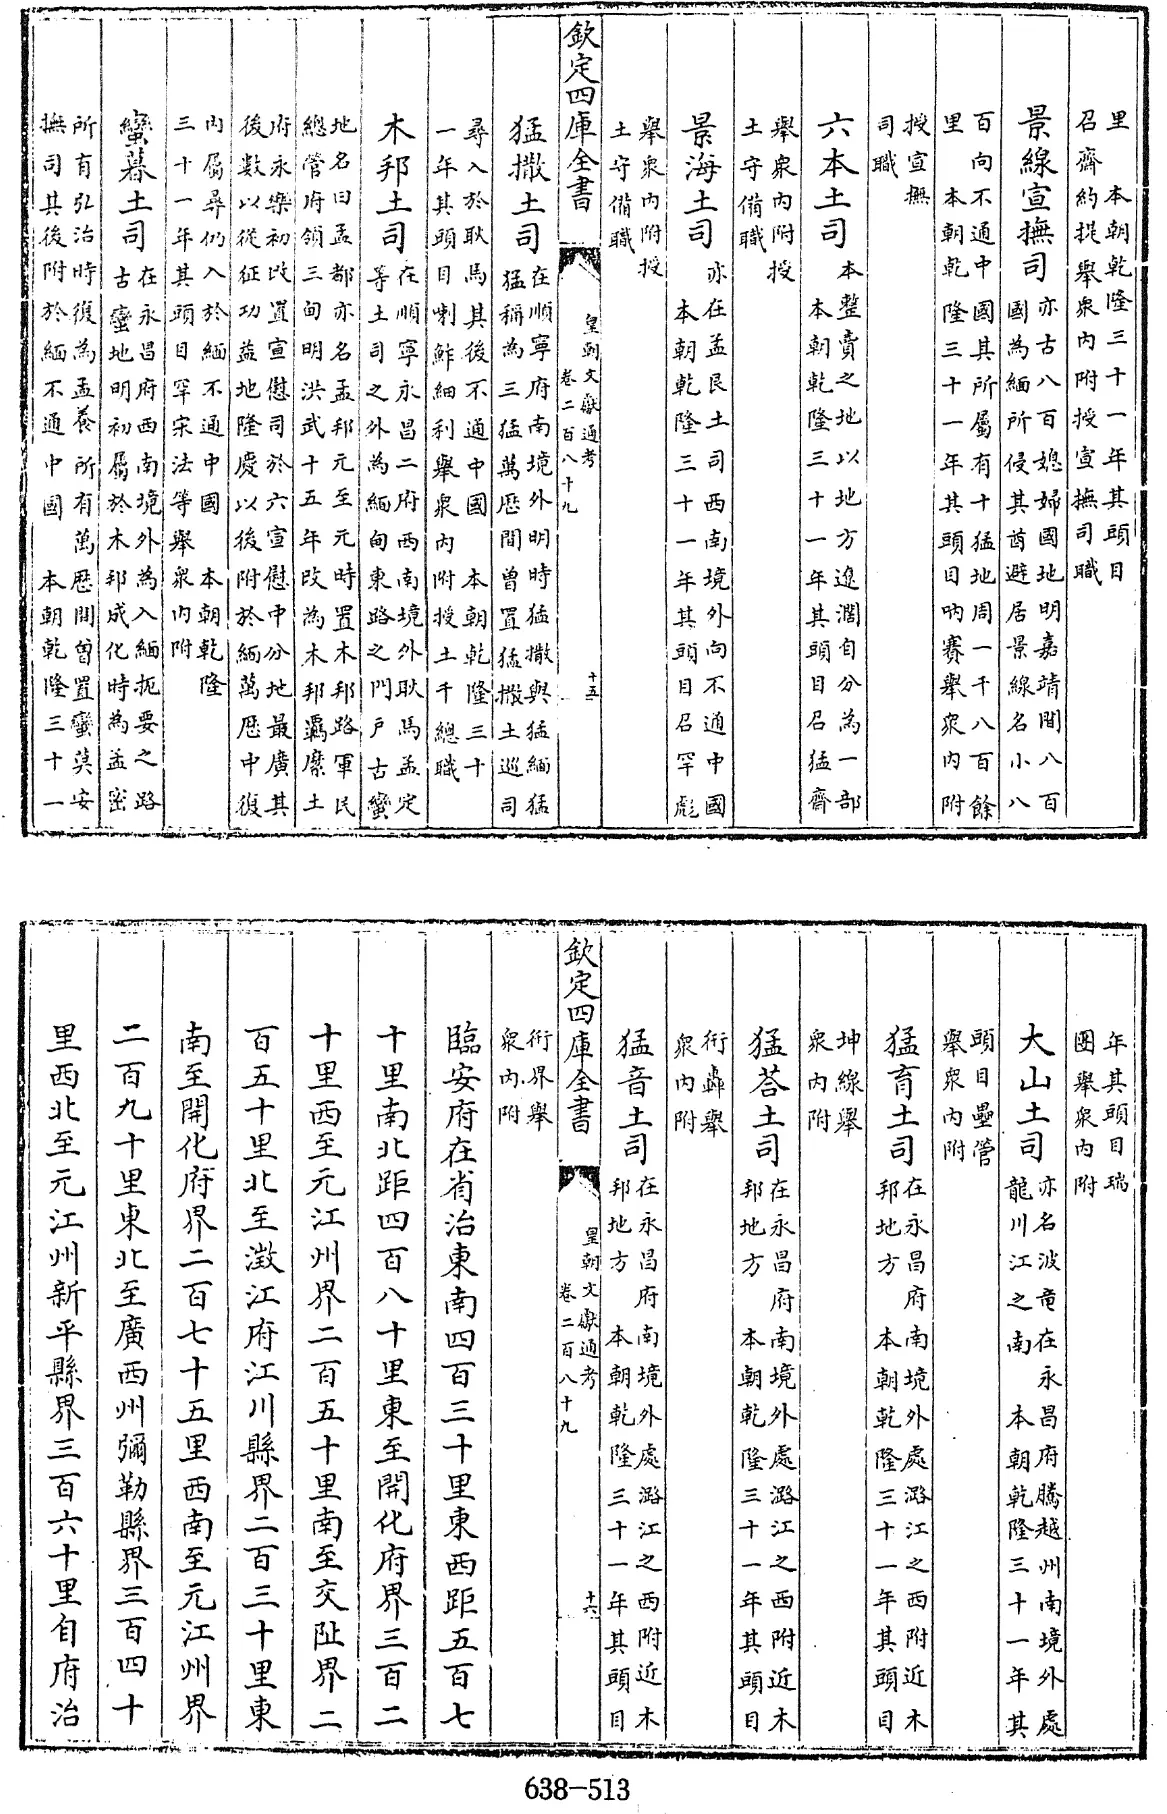 里　本朝乾隆三十一年其頭目
召齋約提舉衆内附授宣撫司職
景線宣撫司
亦古八百媳婦國地明嘉靖間八百
國為緬所侵其酋避居景線名小八
百向不通中國其所屬有十猛地周一千八百餘
里　本朝乾隆三十一年其頭目吶賽舉衆内附
授宣撫
司職
六本土司
本整賣之地以地方遼濶自分為一部
本朝乾隆三十一年其頭目召猛齋
舉衆内附授
土守備職
景海土司
亦在孟艮土司西南境外向不通中國
本朝乾隆三十一年其頭目召罕彪
舉衆内附授
土守備職
欽定四庫全書
皇朝文獻通考
卷二百八十九
十五
猛撒土司
在順寧府南境外明時猛撒與猛緬猛
猛稱為三猛萬歷間曾置猛撒土巡司
尋入於耿馬其後不通中國　本朝乾隆三十
一年其頭目喇鮓細利舉衆内附授土千總職
木邦土司
在順寧永昌二府西南境外耿馬孟定
等土司之外為緬甸東路之門戶古蠻
地名曰孟都亦名孟邦元至元時置木邦路軍民
總管府領三甸明洪武十五年改為木邦羈縻土
府永樂初改置宣慰司於六宣慰中分地最廣其
後數以從征功益地隆慶以後附於緬萬歷中復
内屬尋仍入於緬不通中國　本朝乾隆
三十一年其頭目罕宋法等舉衆内附
蠻暮土司
在永昌府西南境外為入緬扼要之路
古蠻地明初屬於木邦成化時為孟密
所有弘治時復為孟養所有萬歷間曾置蠻莫安
撫司其後附於緬不通中國　本朝乾隆三十一
年其頭目瑞
團舉衆内附
大山土司
亦名波竜在永昌府騰越州南境外處
龍川江之南　本朝乾隆三十一年其
頭目壘管
舉衆内附
猛育土司
在永昌府南境外處潞江之西附近木
邦地方　本朝乾隆三十一年其頭目
坤線舉
衆内附
猛荅土司
在永昌府南境外處潞江之西附近木
邦地方　本朝乾隆三十一年其頭目
衎轟舉
衆内附
猛音土司
在永昌府南境外處潞江之西附近木
邦地方　本朝乾隆三十一年其頭目
欽定四庫全書
皇朝文獻通考
卷二百八十九
十六
衎界舉
衆内附
臨安府在省治東南四百三十里東西距五百七
十里南北距四百八十里東至開化府界三百二
十里西至元江州界二百五十里南至交阯界二
百五十里北至澂江府江川縣界二百三十里東
南至開化府界二百七十五里西南至元江州界
二百九十里東北至廣西州彌勒縣界三百四十
里西北至元江州新平縣界三百六十里自府治
638-513